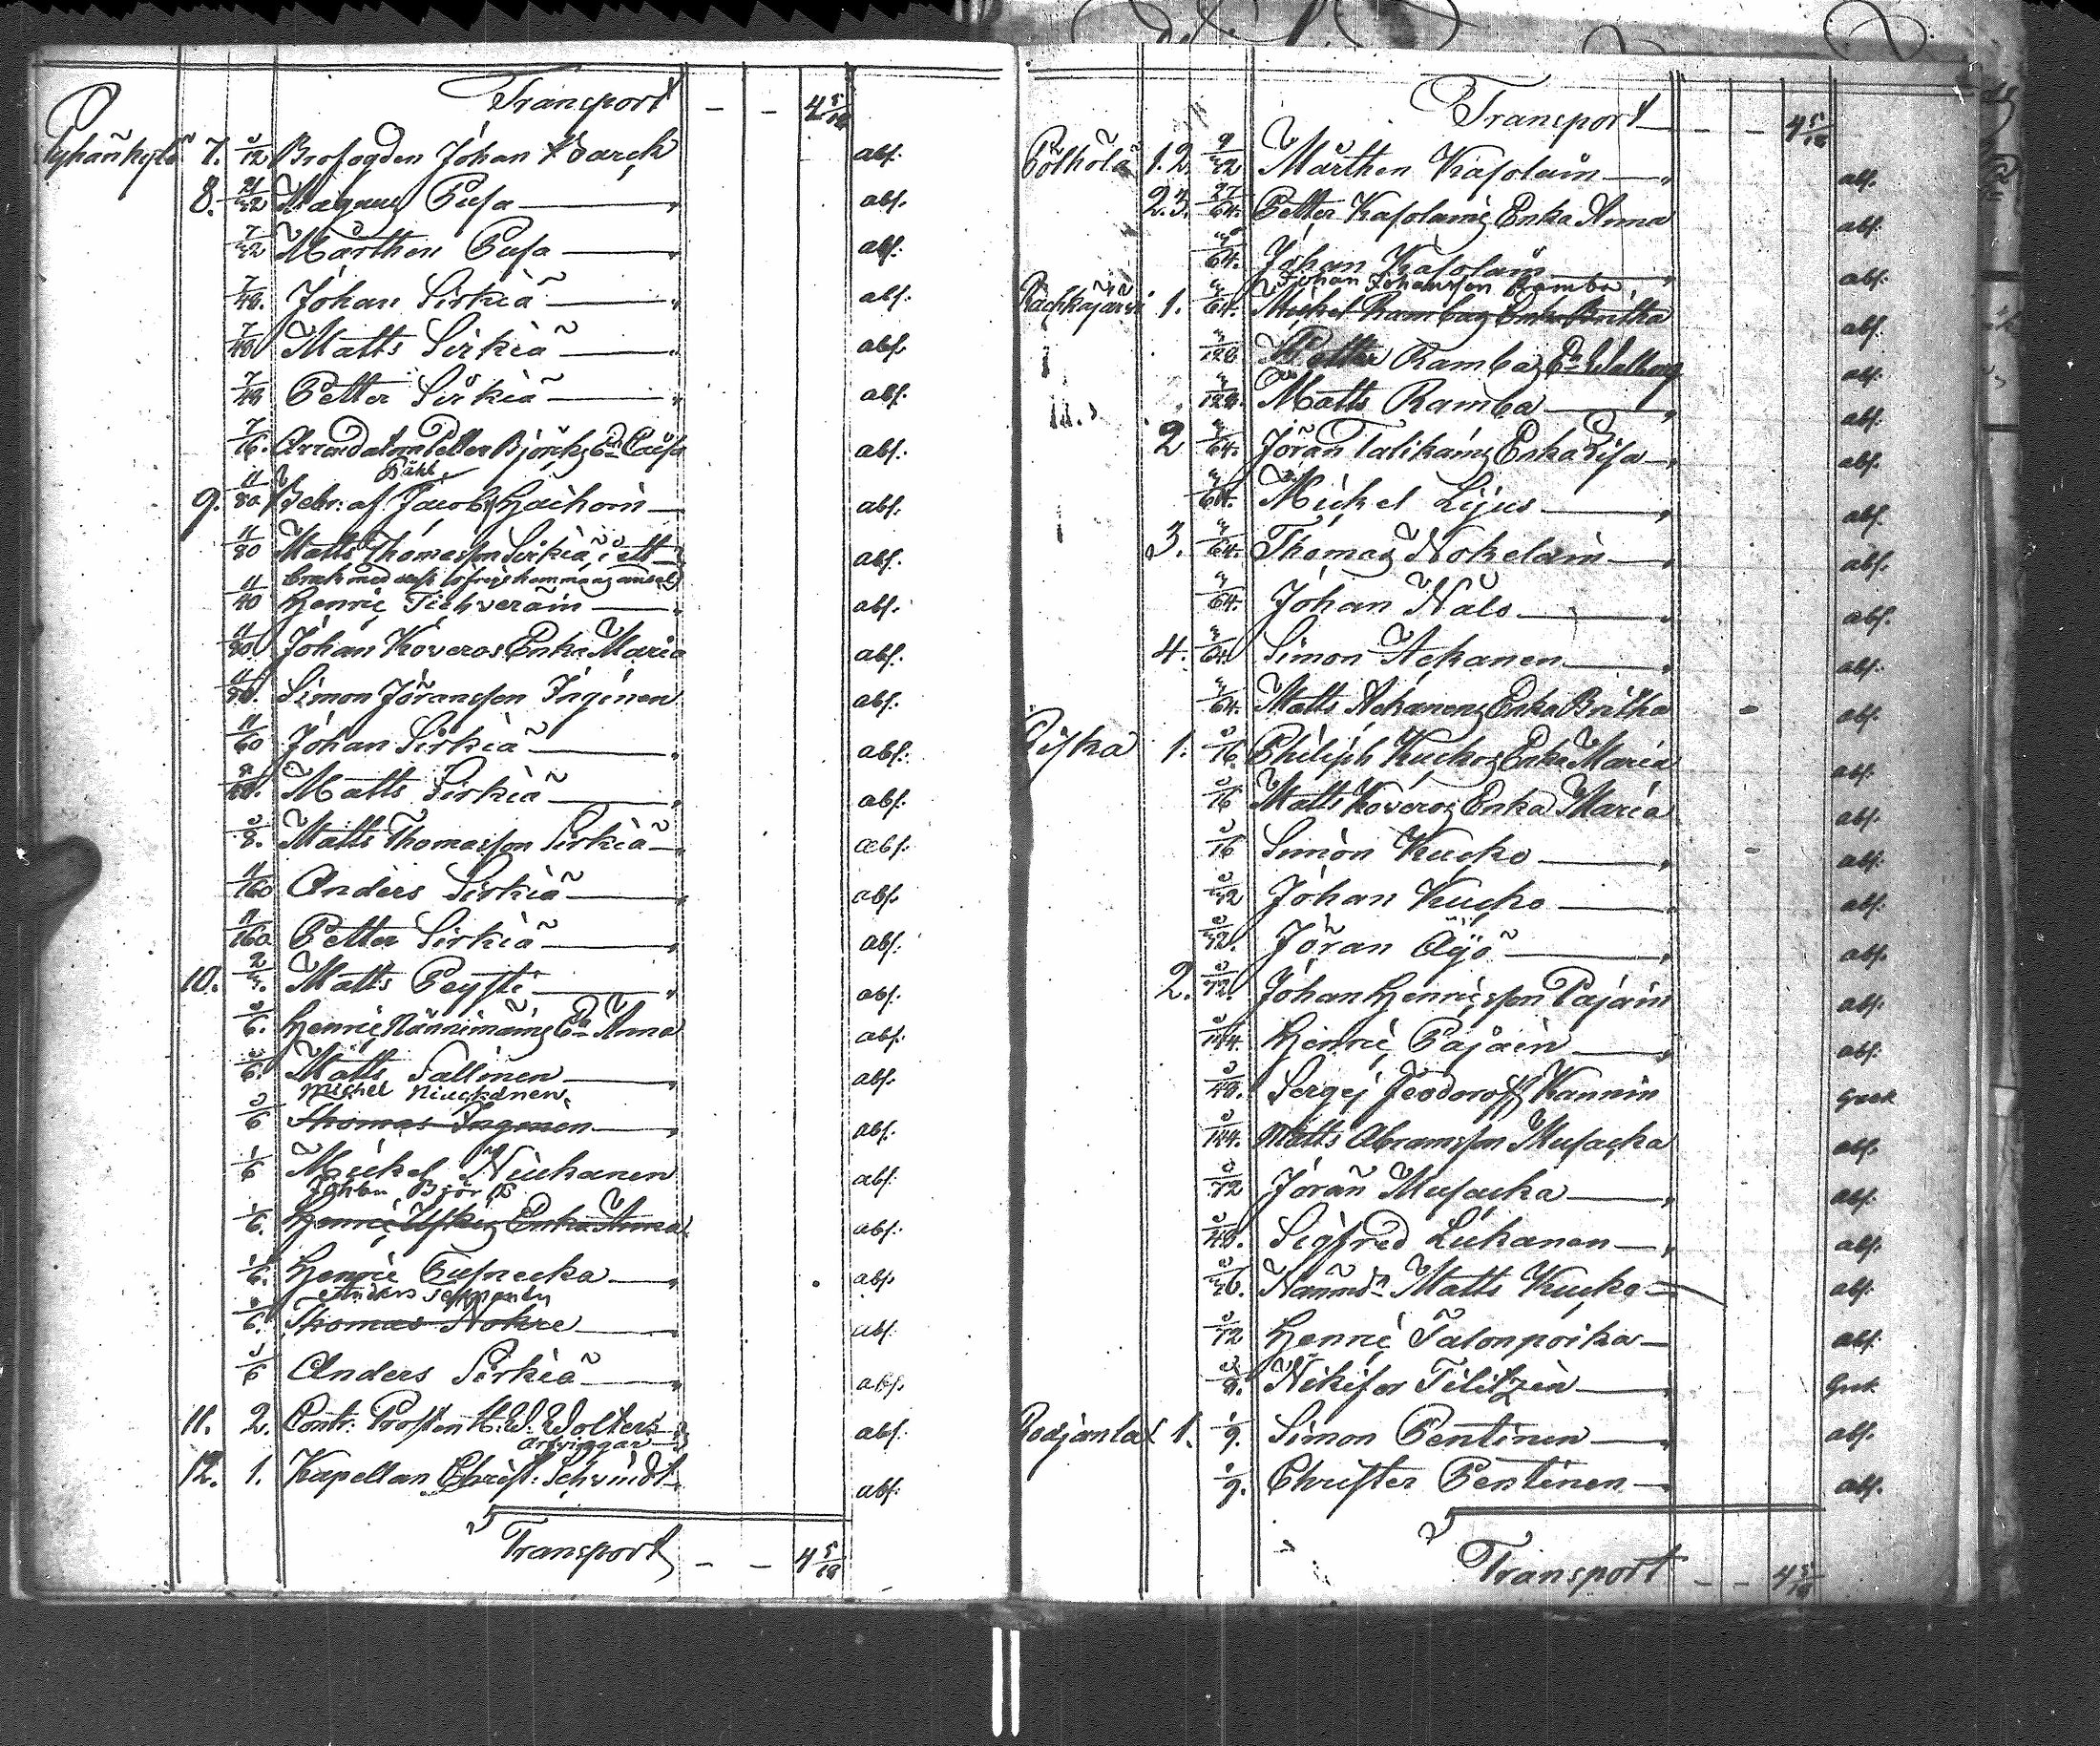 Transport - - 4 5/18
Pyhänkylä 7. 5/12 Brofogden Johan Warck abs.
8. 21/32 Magnus Pusa " abs.
7/32 Mårthen Pusa " abs.
7/48. Johan Sirkiä " abs.
7/48 Matts Sirkiä " abs.
7/48 Petter Sirkiä " abs.
7/16. Arrendatorn Petter Björks En Caisa abs.
Påhl
9. 11/80 Bebr: af Jacob Haihoin abs.
11/80 Matts Thomasson Sirkiä, i ett abs.
bruk med
11/40 Henric Tichveräin " abs.
11/80. Johan Koveros Enka Maria abs.
11/80. Simon Jöransson Inginen abs.
11/60 Johan Sirkiä " abs.
Matts Sirkiä " abs.
Matts Thomasson Sirkiä " abs.
11/160 Anders Sirkiä " abs.
11/160 Petter Sirkiä " abs.
10. 2/3. Matts Peysti " abs.
Henric Nännimäins En Anna abs.
Matts Tallinen " abs.
Michel Niuckanen
Thomas Inginen " abs.
1/6 Mickel Niukanen abs.
Johan Björ
1/6. Henric Uskis Enka Anna abs.
1/6. Henric Tusnecka " abs.
Anders
1/6. Thomas Nokue abs.
Anders Sirkiä " abs.
11. 2. Contr: Prosten H: W: Wolters abs.
arfvingar
12. 1. Kapellan Christ: Schvindt abs.
Transport - - 4 5/18
Transport - - 4 5/18
Pölhölä 1. 2. 9/32 Mårthen Kasolain " abs.
2. 3. 27/64. Petter Kasolains Enka Anna abs.
Johan Kasolain " abs.
Johan Johansson Ramba
Rachkajärvi 1. 3/64. Michel Rambas Enka Britha abs.
3/128 Petter Rambas En Walborg abs.
3/128. Matts Ramba " abs.
2 3/64. Jöran Talikains Enka Lisa " abs.
3/64. Mickel Lijus " abs.
3. 3/64. Thomas Nokelain " abs.
3/64. Johan Näls " abs.
4. 3/64 Simon Ackanen " abs.
3/64. Matts Ackanens Enka Britha - abs.
Riska 1. 5/16. Philiph Kuckos Enka Maria abs.
5/16 Matts Koveros Enka Maria abs.
5/16 Simon Kucko " - abs.
5/32 Johan Kucko " abs.
5/32. Jöran Äijö " abs.
2. 5/72. Johan Henricsson Pajain abs.
5/144. Henric Pajain " abs.
5/48. Sergej Feodoroff Kannin Grek
5/144. Matts Abramsson Musacka abs.
5/72 Jöran Musacka " abs.
5/48. Sigfred Liukanen " abs.
5/36. Nämndn Matts Kucko abs.
5/72 Henric Talonpoika abs.
Nikifor Tilitzin " Grek
Rodjanlax 1. 1/9. Simon Pentinen " abs.
1/9. Christer Pentinen " abs.
Transport - - 4 5/18